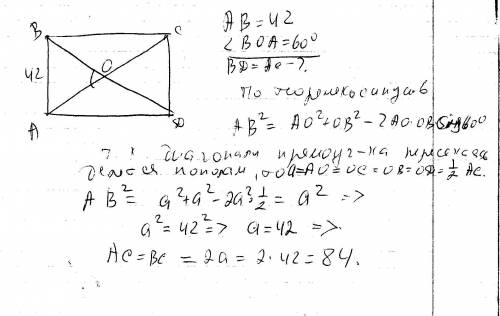 B C
AB = 42
O
∠BOA = 60°
42
BD = AC - ?
По теореме косинусов
A D
AB² = AO² + OB² - 2AO·OB 60°
Т.к диагонали прямоуг-ка пересекаясь
делятся пополам, то a = AO = OC = OB = OD = 1/2 AC.
AB² = a² + a² - 2a² 1/2 = a² =>
a² = 42² => a = 42 =>
AC = BC = 2a = 2·42 = 84.